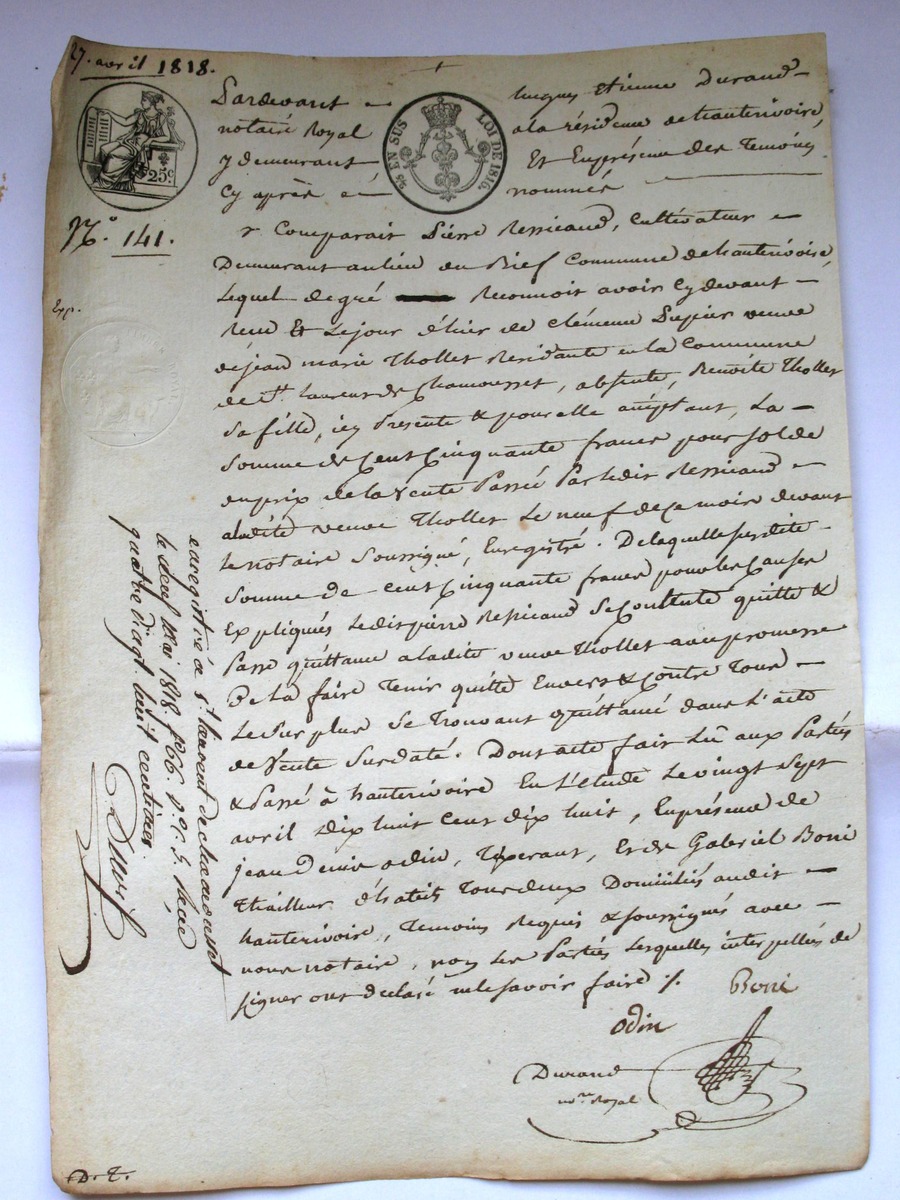 27. avril 1818.
Pardevant Jacques Etienne Durand
notaire Royal a la résidence de hauterivoire,
y demeurant Et En présence des Temoins
Cy après nommés
25c
EN SUS LOI DE 1816.
N.° 141.
Exp.
Comparait Pierre Ressicaud, Cultivateur
Demeurant au lieu du Rief Commune de hauterivoire,
Lequel de gré Reconnoit avoir Cy devant
Recu Et Le jour d'hier de Clémence Dupier veuve
de jean marie Thollet Residante en la Commune
de St. Laurent de Chamousset, absente, Benoite Thollet
Sa fille, icy Presente & pour elle acceptant, La
Somme de Cent Cinquante francs pour Solde
du prix de la Vente Passée Par ledit Ressicaud
a ladite veuve Thollet Le neuf de Ce mois devant
Le notaire Soussigné, Enregistré. De laquelle susdite
Somme de Cent Cinquante francs pour les Causes
Expliqués Ledit pierre Ressicaud Se Contente quitte &
Passe quittance a ladite veuve Thollet avec promesse
De La faire Tenir quitte Envers & Contre Tous
Le Sur plus Se Trouvant quittancé dans L'acte
de Vente Surdaté. Dont acte fait Lu aux Parties
& Passé à hauterivoire En L'étude Le vingt Sept
avril dix huit Cent dix huit, En présence de
jean Denis odin, Et de Gabriel Boni
Thailleur d'habits Tous deux Domiciliés audit
hauterivoire, Temoins Requis & soussignés avec
nous notaire, non Les Parties Lesquelles interpellés de
signer ont declaré ne le savoir faire ./.
Boni
odin
Durand
no.re Royal
enregistré à St. laurent de chamousset
le deux Mai 1818 f° 66 r° c. 5. Reçu
quatre vingt huit centimes.
D. T.